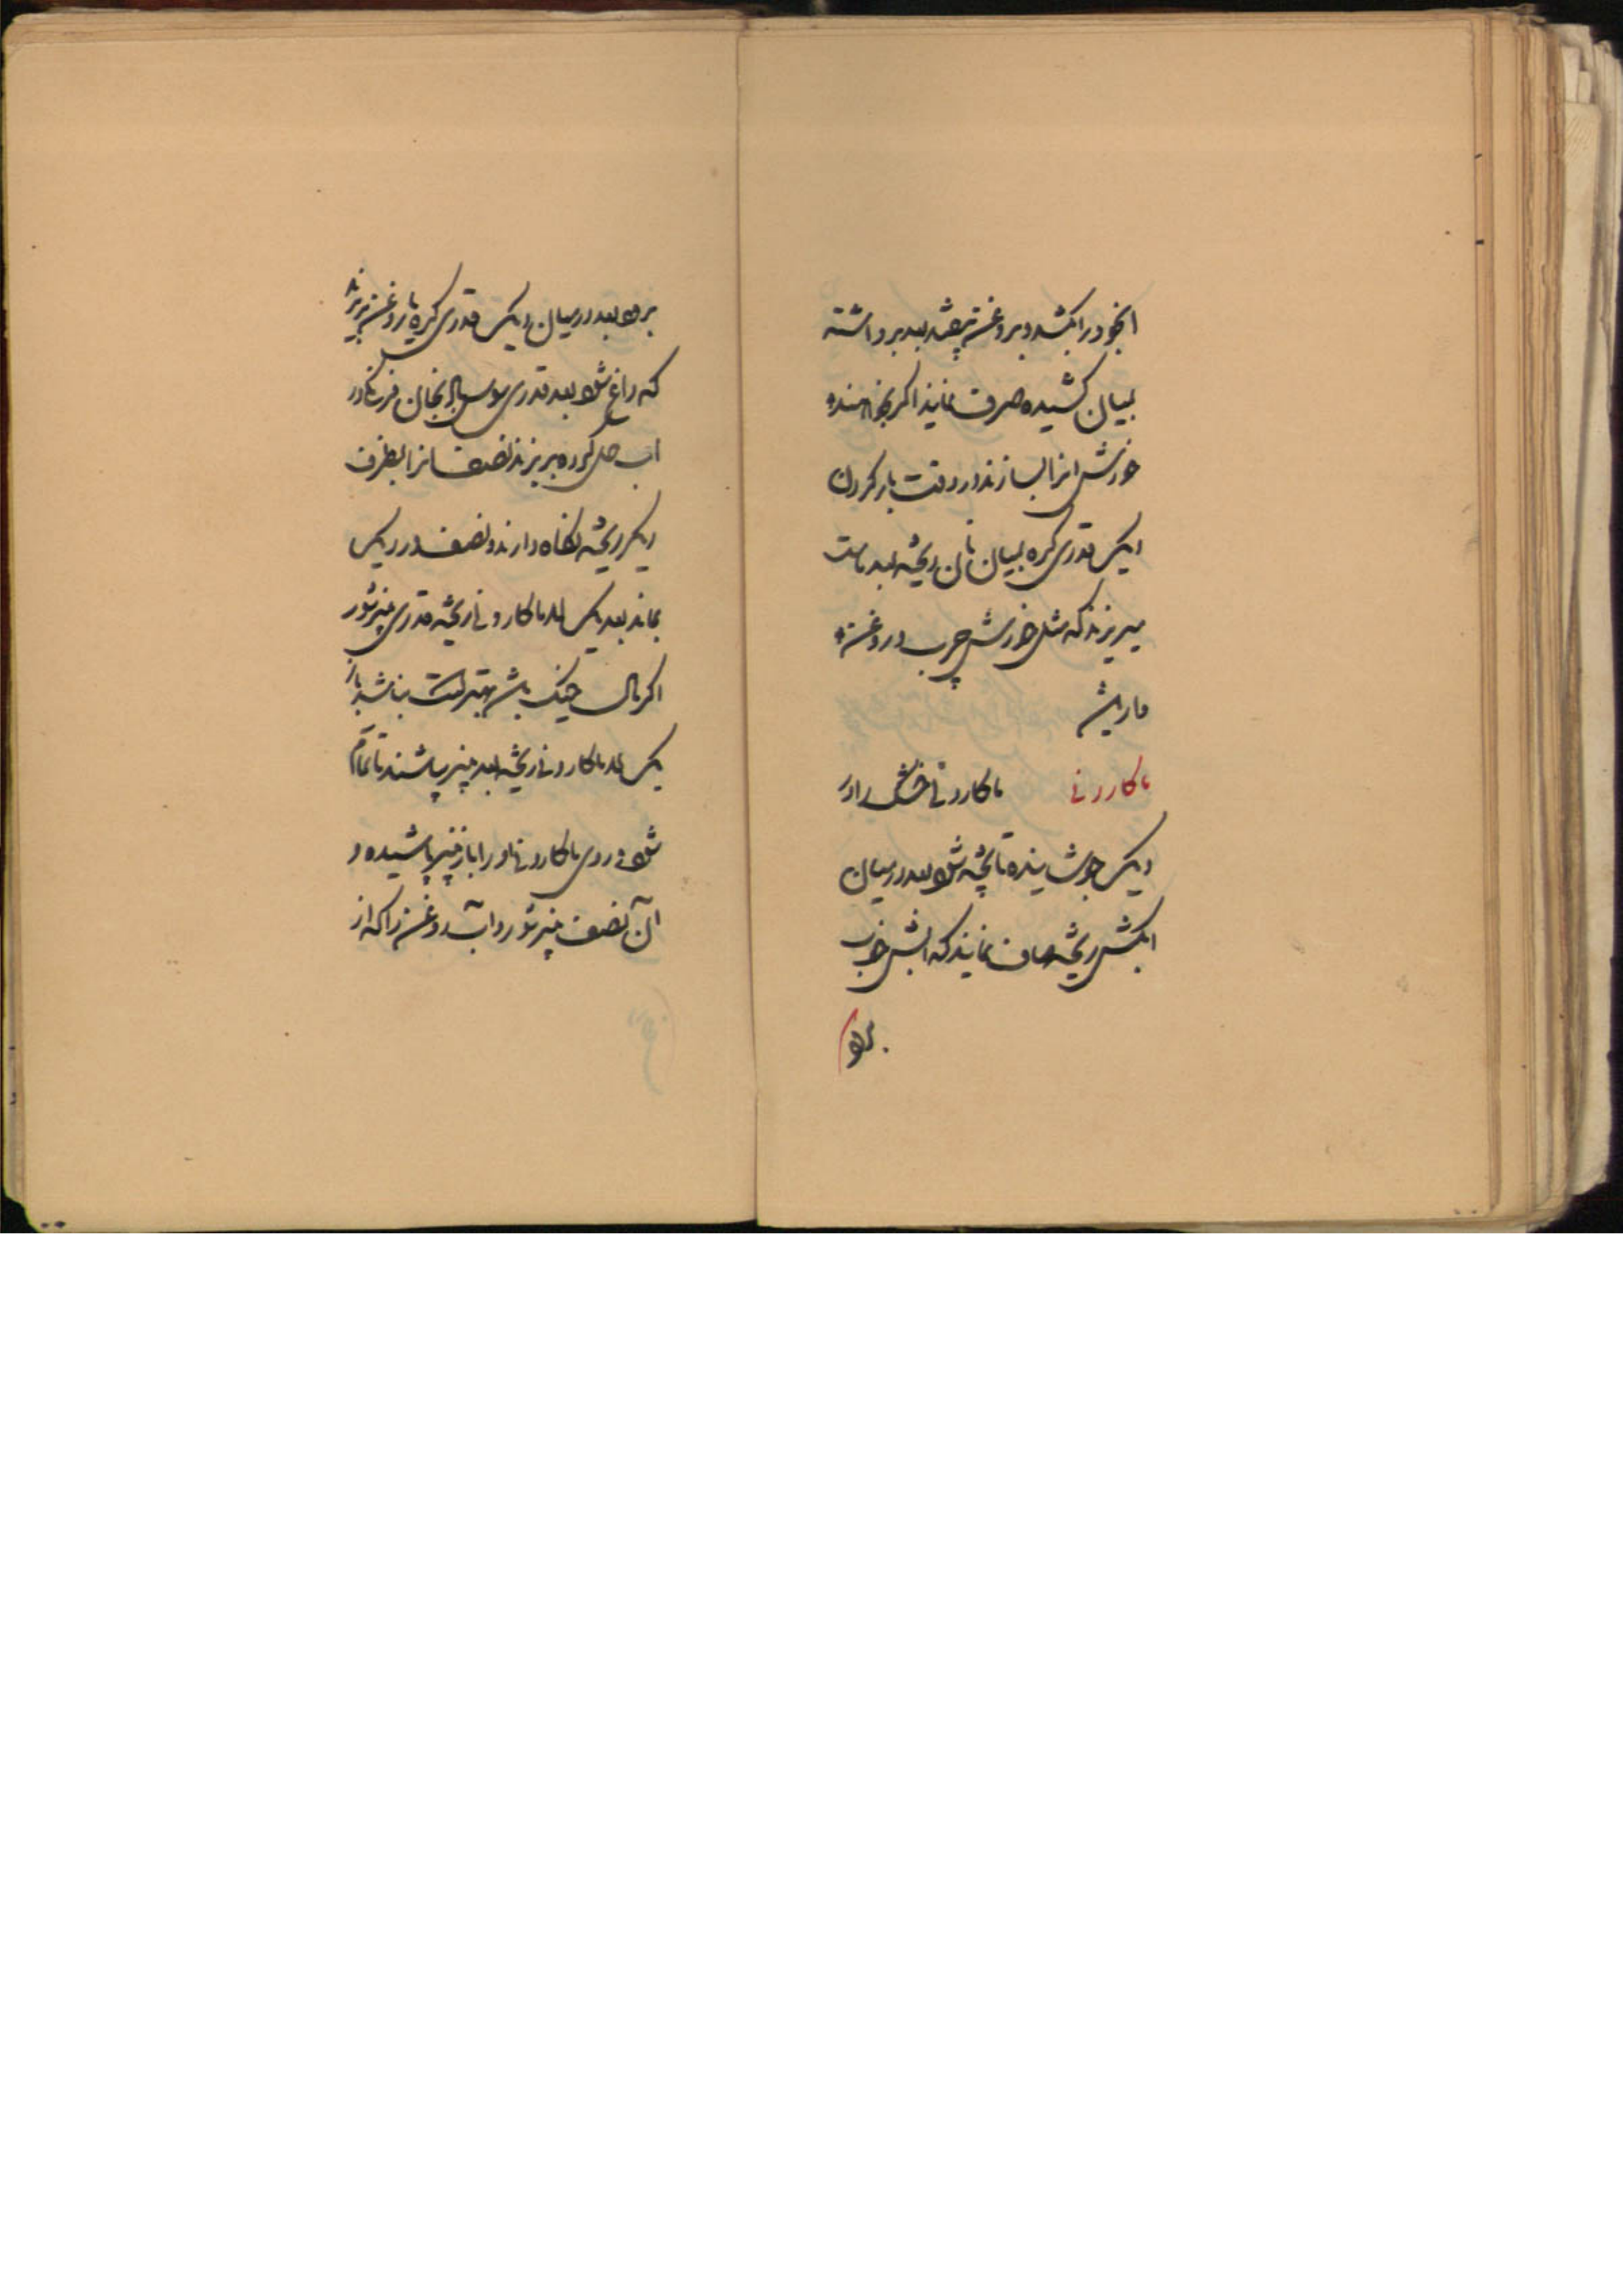 ابخود را بکشد و بروغن بیفتد بعد برداشته
بمیان کشیده صرف نمایند اگر بخواهند
خورش انرا بسازند در وقت بار کردن
دیک قدری کره بمیان نان ریخته بعد ماست
میریزند که مثل خورش چرب و روغن
دار باشد
ماکارونی ماکارونی خشک را در
دیک جوشانیده تا پخته شود بعد در میان
ابکش ریخته صاف نمایند که ابش خوب
برود
برود بعد در میان دیک قدری کره یا روغن بریزند
که داغ شود بعد قدری سوس بادنجان فرنکی در
اب حل کرده بریزند نصف انرا بظرف
دیکر ریخته نکاه دارند و نصف در دیک
بماند بعد یک لا ماکارونی ریخته قدری پنیر شور
اکر مال خیک باشد بهتر است نباشد باز
یک لا ماکارونی ریخته بعد پنیر بپاشند تا تمام
شود روی ماکارونی را باز پنیر پاشیده و
آن نصف پنیر شور و آب روغن را که از